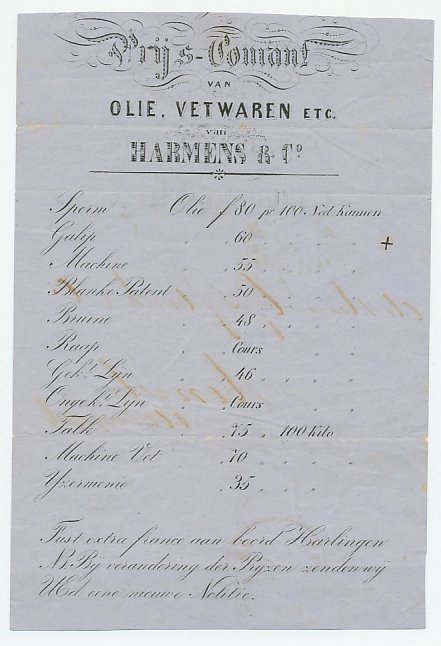 Prijs-Corant
VAN
OLIE, VETWAREN ETC.
van
HARMENS & Cº
Sperm Olie f 80 pr 100 Ned Kannen
Galip " " 60 " " "
Machine " " 55 " " "
Blanke Patent " " 50 " " "
Bruine " " 48 " " "
Raap " " Cours " " "
Gekt. Lyn " " 46 " " "
Ongekt. Lyn " " Cours " " "
Talk " 75 " 100 Kilo
Machine Vet " 70 " "
Yzermenie " 35 " " "
Fust extra franco aan boord Harlingen
NB Bij verandering der Pryzen zenden wij
UEd eene nieuwe Notitie.